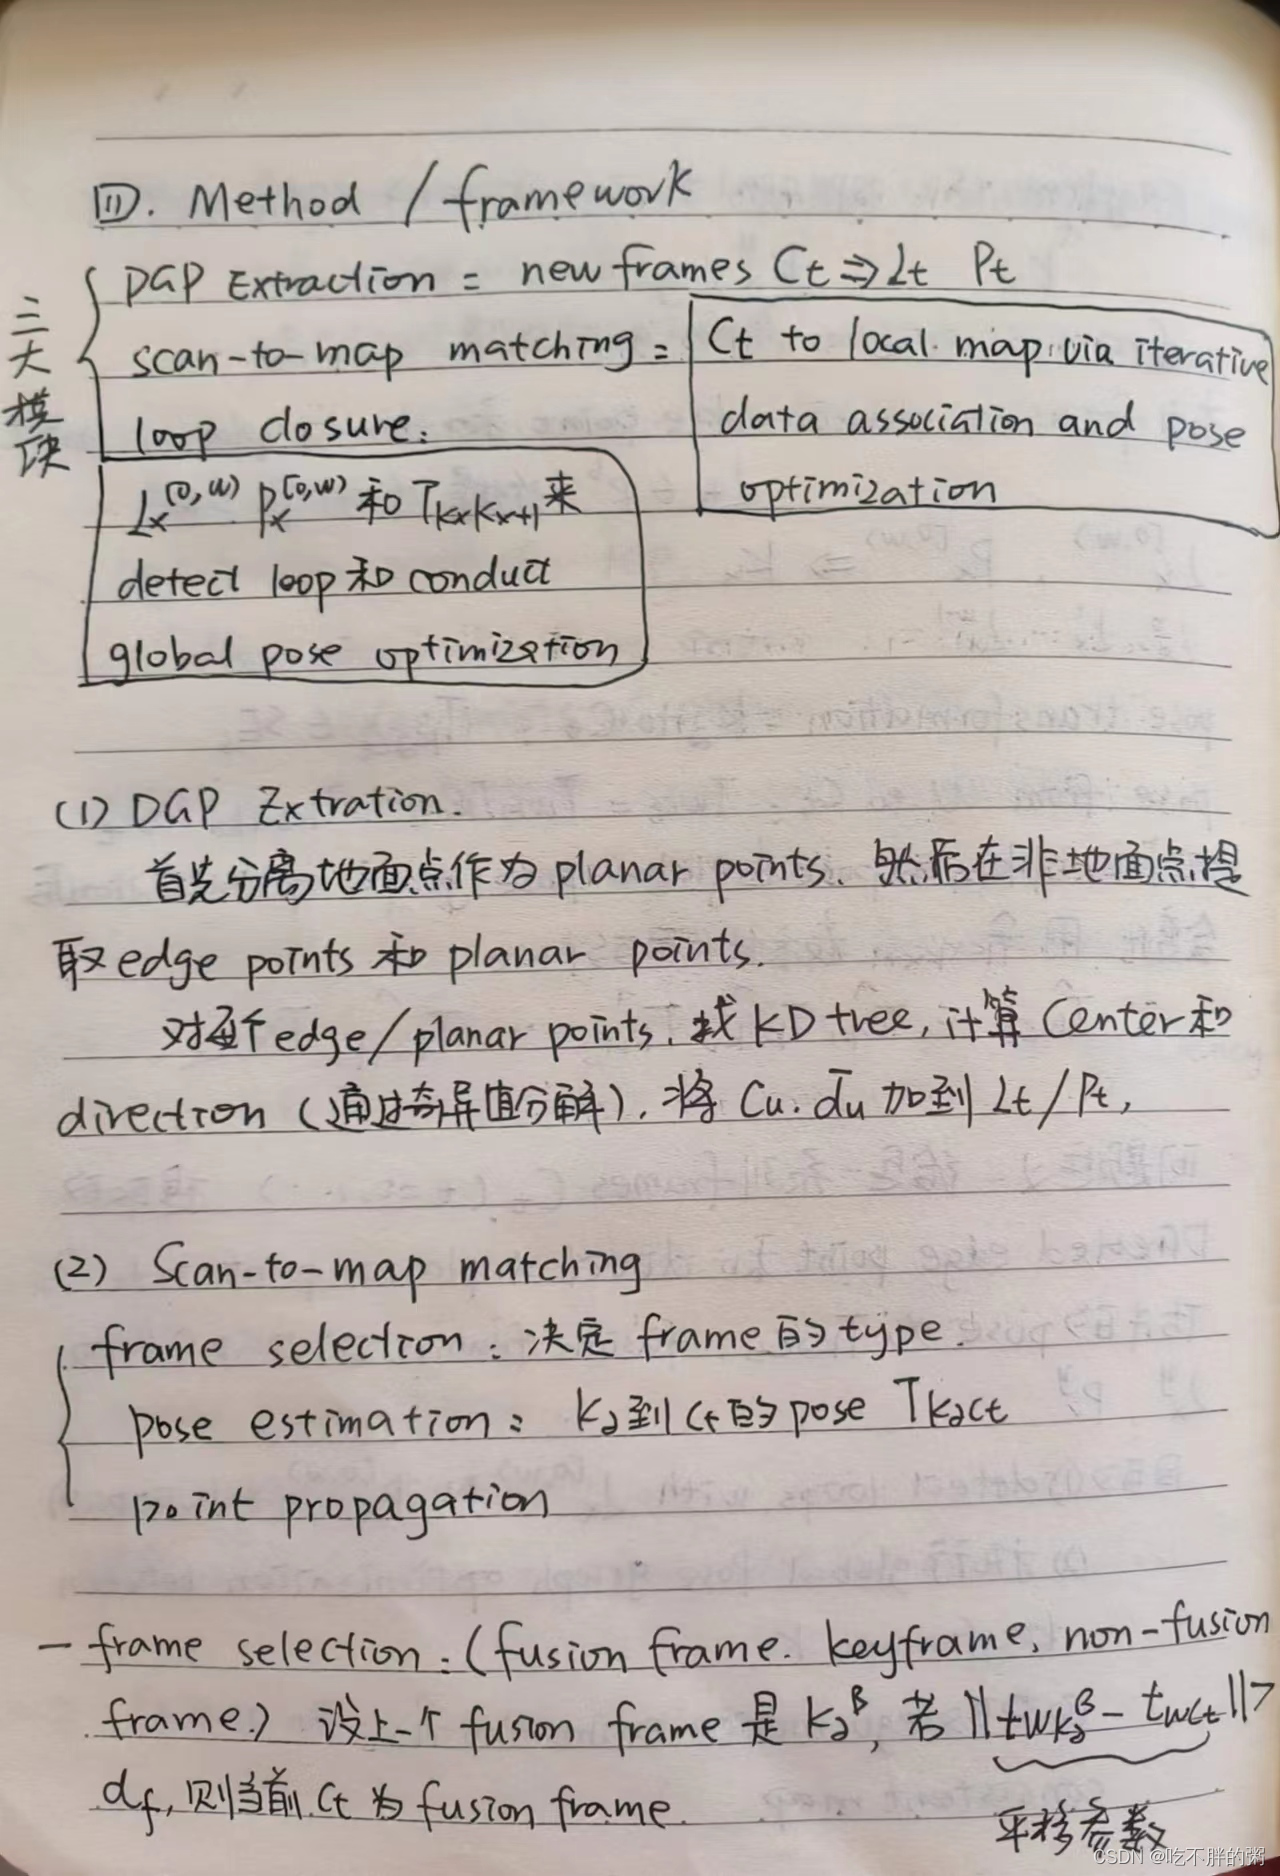 III. Method / framework
三大模块
DGP Extraction: new frames Ct ⇒ Lt Pt
scan-to-map matching: Ct to local map via iterative
data association and pose
optimization
loop closure:
Lx^[0,w) Px^[0,w) 和 Tkxkx+1来
detect loop和conduct
global pose optimization
(1) DGP Extration.
首先分离地面点作为planar points. 然后在非地面点提
取edge points 和 planar points.
对每个edge/planar points. 找KD tree, 计算Center和
direction (通过奇异值分解). 将 Cu. du 加到 Lt/Pt,
(2) Scan-to-map matching
frame selection: 决定frame的type.
pose estimation: k∂到Ct的pose Tk∂Ct
point propagation
- frame selection: (fusion frame. keyframe. non-fusion
frame.) 设上一个 fusion frame 是 k∂^β, 若 ||twk∂^β - twCt||>
df, 则当前Ct为fusion frame.
平移参数
CSDN @吃不胖的粥